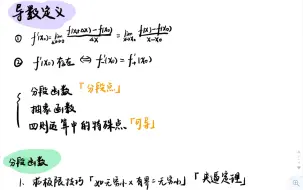 导数定义
① f'(x₀)=lim Δx→0 f(x₀+Δx)-f(x₀)/Δx = lim x→x₀ f(x)-f(x₀)/x-x₀
② f'(x₀) 存在 ⇔ f'₋(x₀)=f'₊(x₀)
分段函数「分段点」
抽象函数
四则运算中的特殊点「可导」
分段函数
1. 求极限技巧「无穷小×有界=无穷小」「夹逼定理」